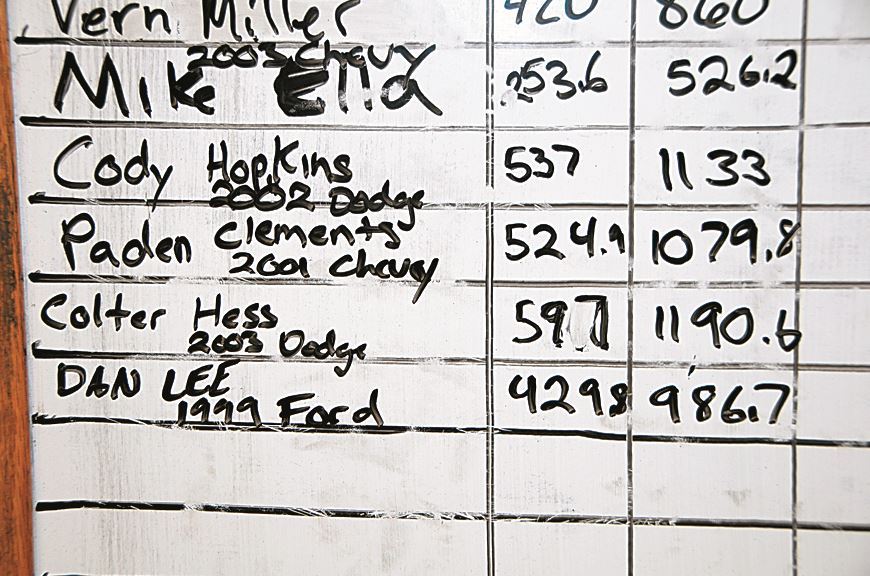 Vern Miller 420 860
2003 Chevy
Mike Elia 253.6 526.2
Cody Hopkins 537 1133
2002 Dodge
Paden Clements 524.9 1079.8
2001 Chevy
Colter Hess 597 1190.6
2003 Dodge
DAN LEE 429.8 986.7
1999 Ford